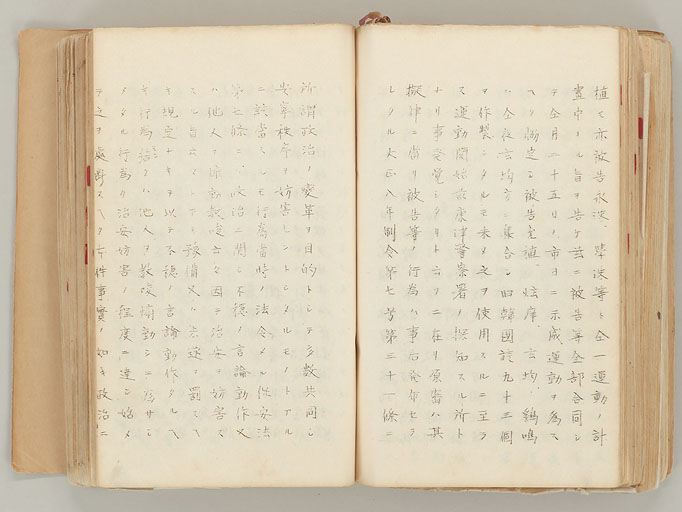 植モ亦被告永洙、學洙等ト仝一運動ノ計
畫中ナル旨ヲ告ケ茲ニ被告等全部合同シ
テ仝月二十五日ノ市日ニ示威運動ヲ為ス
ヘク協定シ被告寛植、炫庠、玄均、鷄鳴
ハ仝夜玄均方ニ集合シ旧韓國旗九十三個
ヲ作製シタルモ未タ之ヲ使用スルニ至ラ
ス運動開始前康津警察署ノ探知スル所ト
ナリ事発覚シタリト云フニ在リ原審ハ其
擬律ニ當リ被告等ノ行為ハ事后発布セラ
レタル大正八年制令第七号第三十一條ニ
所謂政治ノ変革ヲ目的トシテ多数共同シ
安寧秩序ヲ妨害シントシタルモノトアル
ニ該當スルモ行為當時ノ法令タル保安法
第七條ニハ政治ニ関シ不穏ノ言論動作又
ハ他人ヲ煽動教唆云々因テ治安ヲ妨害ス
スル旨云々トアリ豫備又ハ未遂ヲ罰スヘ
キ規定ナキヲ以テ不穏ノ言論動作タルヘ
キ行為若クハ他人ヲ教唆煽動シニ為サシ
メタル行為カ治安妨害ノ程度ニ達シ始メ
テ之ヲ處断スヘク本件事實ノ如キ政治ニ